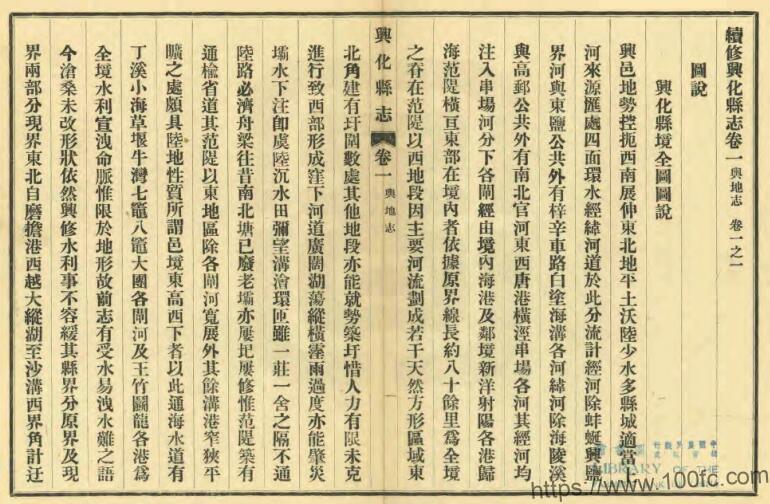 續修興化縣志卷一 輿地志 卷一之一
圖說
興化縣境全圖圖說
興邑地勢控扼西南展伸東北地平土沃陸少水多縣城適當
河來源匯處四面環水經緯河道於此分流計經河除蚌蜒興鹽
界河與東鹽公共外有梓辛車路白塗海溝各河緯河除海陵溪
與高郵公共外有南北官河東西唐港橫涇串場各河其經河均
注入串場河分下各閘經由境內海港及鄰境新洋射陽各港歸
海范隄橫亙東部在境內者依據原界線長約八十餘里爲全境
之脊在范隄以西地段因主要河流劃成若干天然方形區域東
興化縣志 卷一 輿地志
北角建有圩圍數處其他地段亦能就勢築圩惜人力有限未克
進行致西部形成窪下河道廣闊湖蕩縱橫霪雨過度亦能肇災
壩水下注卽虞陸沉水田彌望溝澮環匝雖一莊一舍之隔不通
陸路必濟舟梁往昔南北塘已廢老壩亦屢圮屢修惟范隄築有
通榆省道其范隄以東地區除各閘河寬展外其餘溝港窄狹平
曠之處頗具陸地性質所謂邑境東高西下者以此通海水道有
丁溪小海草堰牛灣七竈八竈大團各閘河及王竹鬭龍各港爲
全境水利宣洩命脈惟限於地形故前志有受水易洩水難之語
今滄桑未改形狀依然興修水利事不容緩其縣界分原界及現
界兩部分現界東北自磨擔港西越大縱湖至沙溝西界角計迂
LIBRARY OF THE
https://www.100fc.com